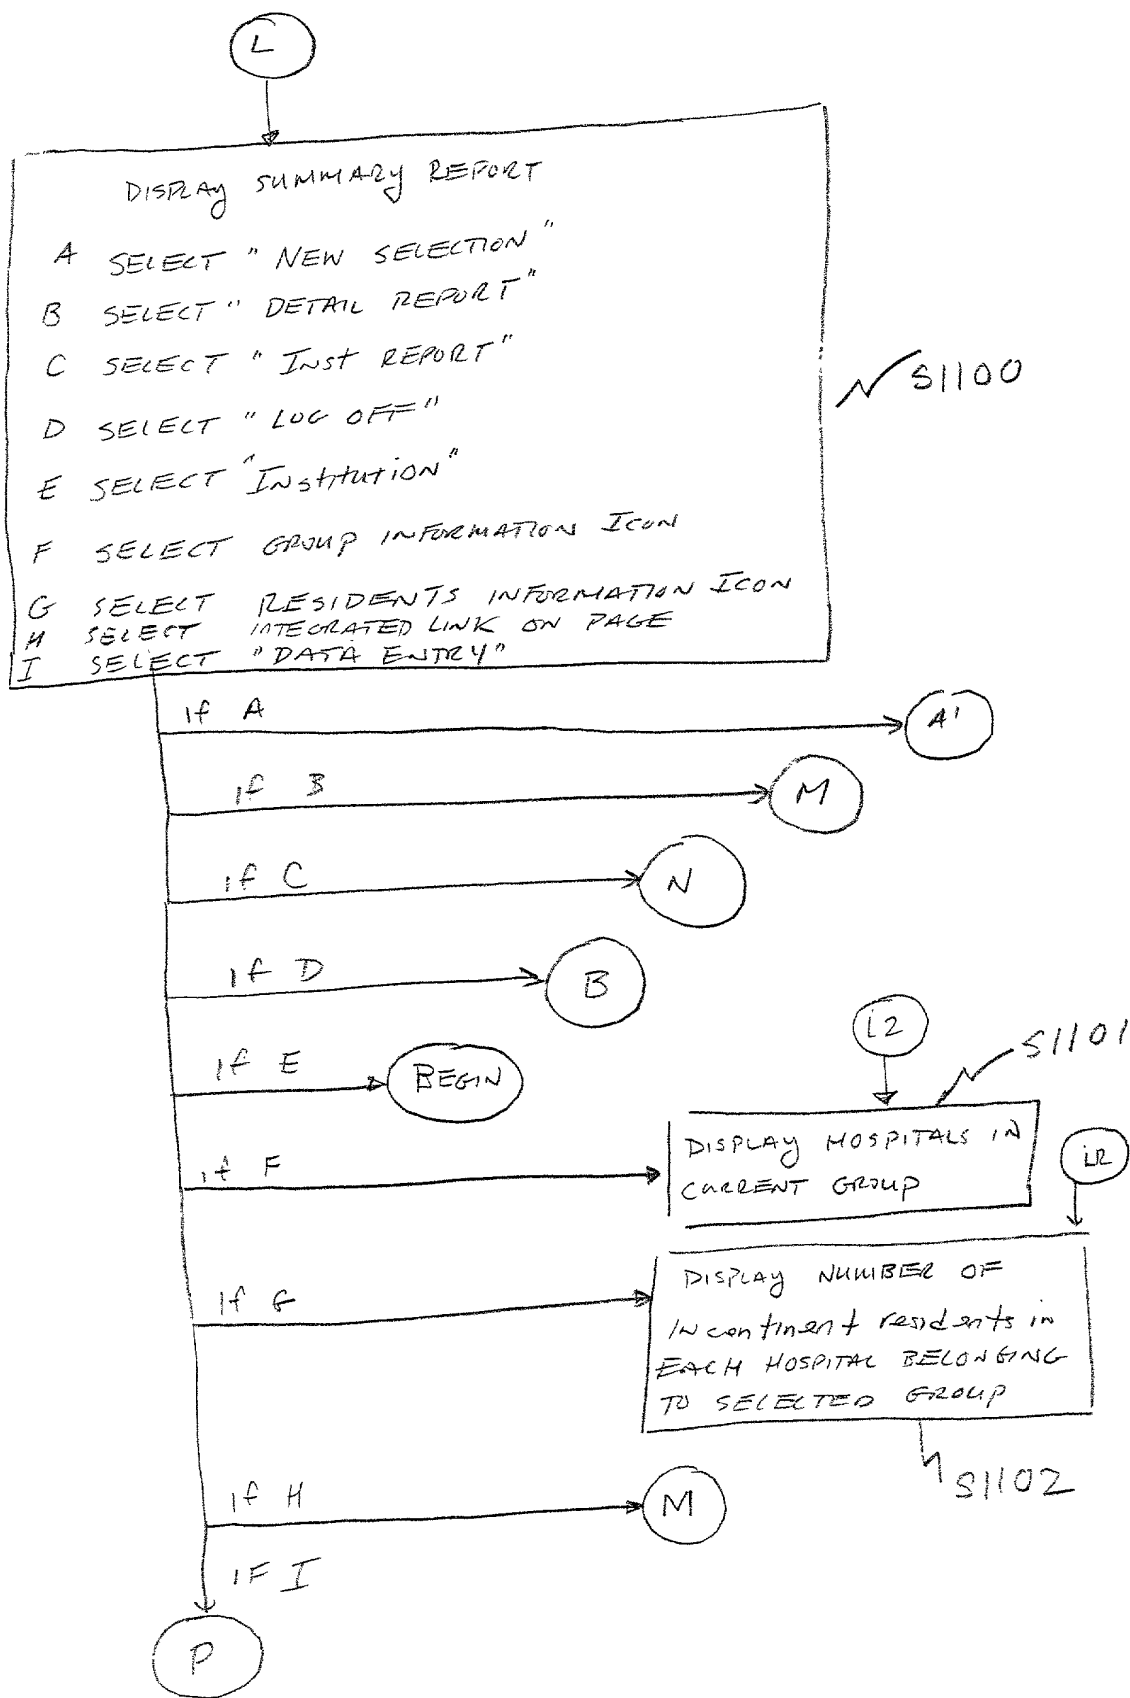 L
DISPLAY SUMMARY REPORT
A SELECT "NEW SELECTION"
B SELECT "DETAIL REPORT"
C SELECT "INST REPORT"
D SELECT "LOG OFF"
E SELECT "INSTITUTION"
F SELECT GROUP INFORMATION ICON
G SELECT RESIDENTS INFORMATION ICON
H SELECT INTEGRATED LINK ON PAGE
I SELECT "DATA ENTRY"
S1100
if A
A'
if B
M
if C
N
if D
B
if E
BEGIN
S1101
if F
DISPLAY HOSPITALS IN
CURRENT GROUP
if G
DISPLAY NUMBER OF
Incontinent residents in
EACH HOSPITAL BELONGING
TO SELECTED GROUP
S1102
if H
M
IF I
P